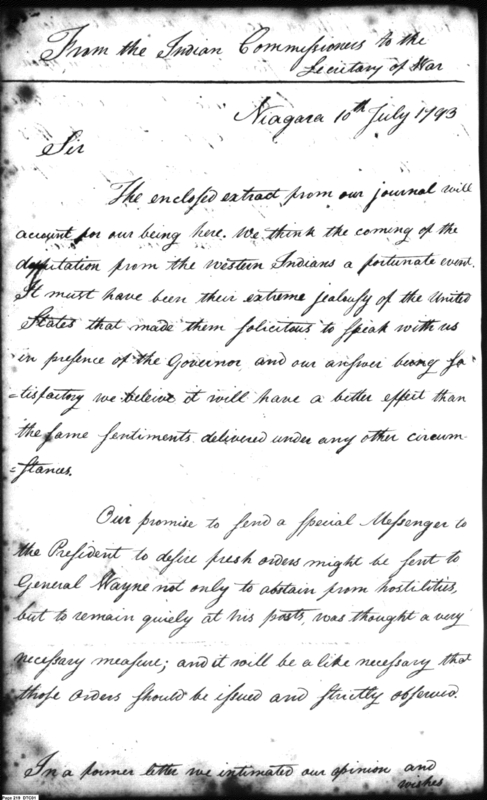 From the Indian Commissioners to the
Secretary of War
Niagara 10th July 1793
Sir
The enclosed extract from our journal will
account for our being here. We think the coming of the
deputation from the western Indians a fortunate event.
It must have been their extreme jealousy of the United
States that made them solicitous to speak with us
in presence of the Governor, and our answer being sa-
=tisfactory we beleive it will have a better effect than
the same sentiments delivered under any other circum-
=stances.
Our promise to send a special Messenger to
the President to desire fresh orders might be sent to
General Wayne not only to abstain from hostilities,
but to remain quiely at his posts, was thought a very
necessary measure; and it will be alike necessary that
those Orders should be issued and strictly observed.
In a former letter we intimated our opinion and
wishes
Page 219 DTC01